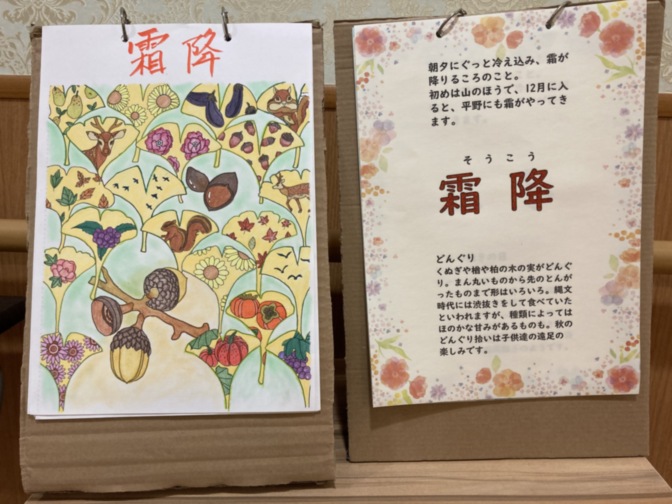 霜降
朝夕にぐっと冷え込み、霜が
降りるころのこと。
初めは山のほうで、12月に入
ると、平野にも霜がやってき
ます。
そうこう
霜降
どんぐり
くぬぎや楢や柏の木の実がどんぐ
り。まん丸いものから先のとんが
ったものまで形はいろいろ。縄文
時代には渋抜きをして食べていた
といわれますが、種類によっては
ほのかな甘みがあるものも。秋の
どんぐり拾いは子供達の遠足の
楽しみです。